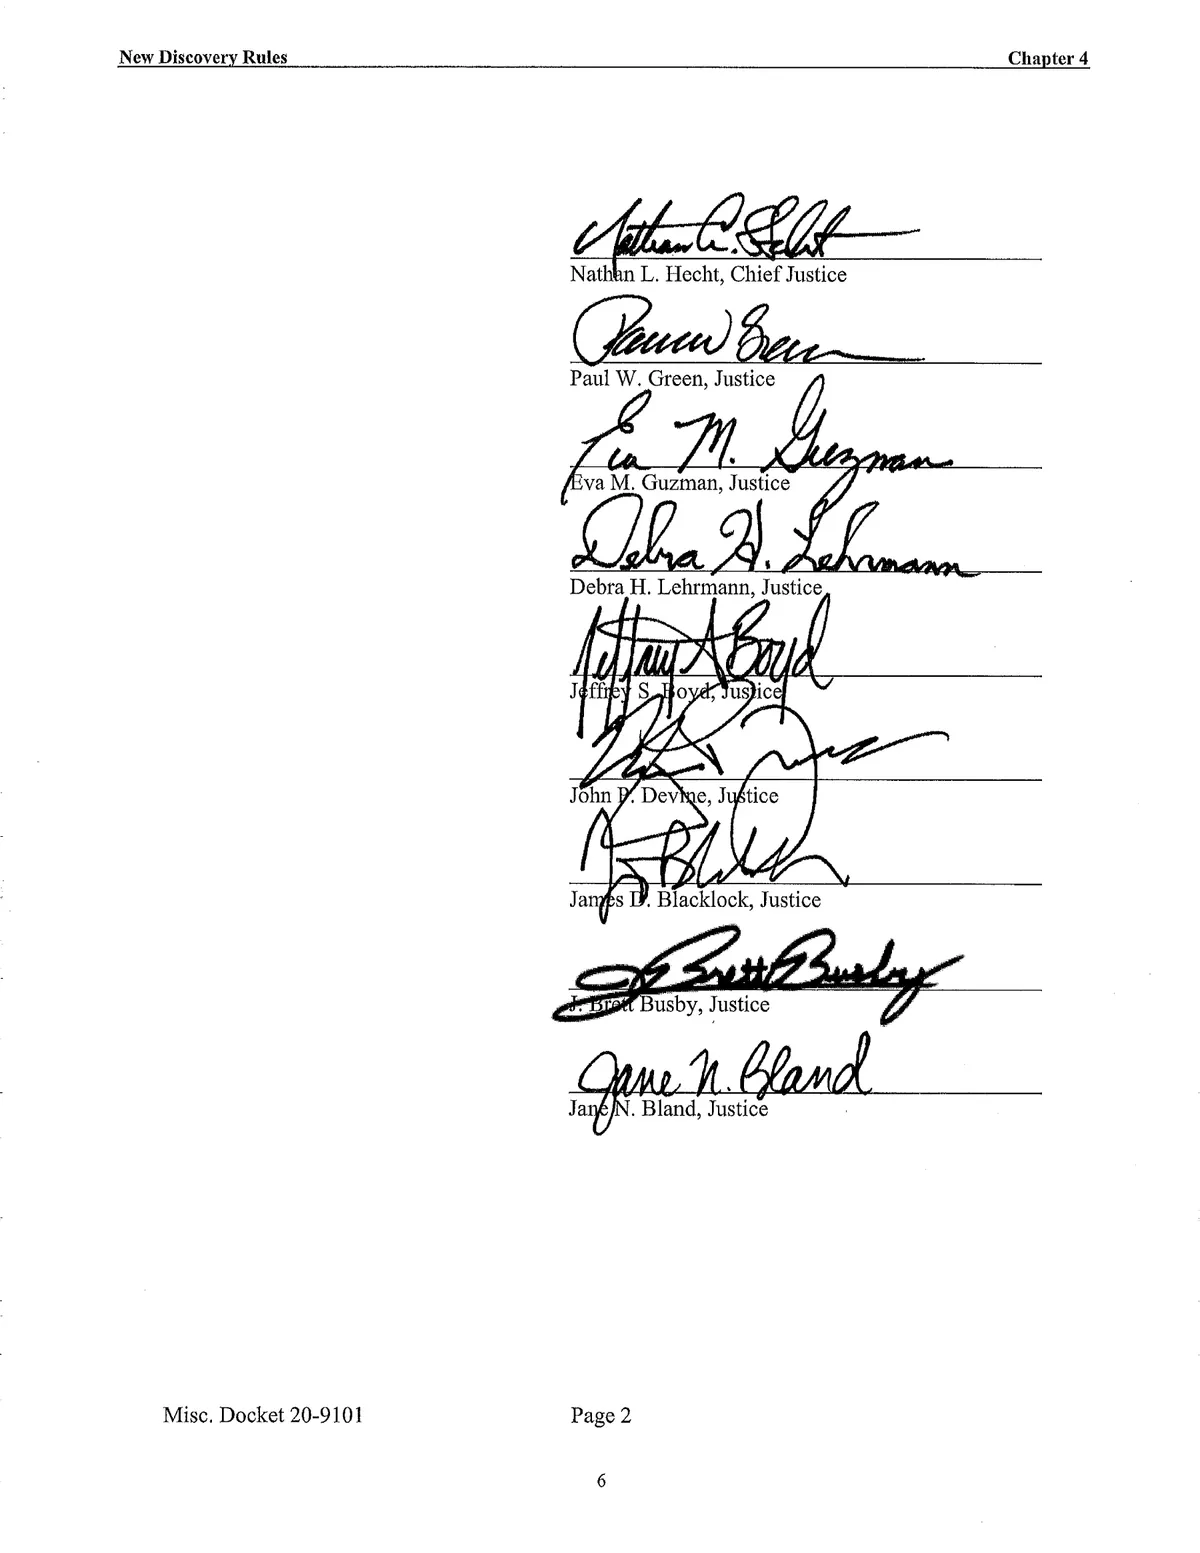 New Discovery Rules Chapter 4
Nathan L. Hecht
Nathan L. Hecht, Chief Justice
Paul W. Green
Paul W. Green, Justice
Eva M. Guzman
Eva M. Guzman, Justice
Debra H. Lehrmann
Debra H. Lehrmann, Justice
Jeffrey S. Boyd
Jeffrey S. Boyd, Justice
John P. Devine, Justice
James D. Blacklock, Justice
J. Brett Busby
J. Brett Busby, Justice
Jane N. Bland
Jane N. Bland, Justice
Misc. Docket 20-9101 Page 2
6